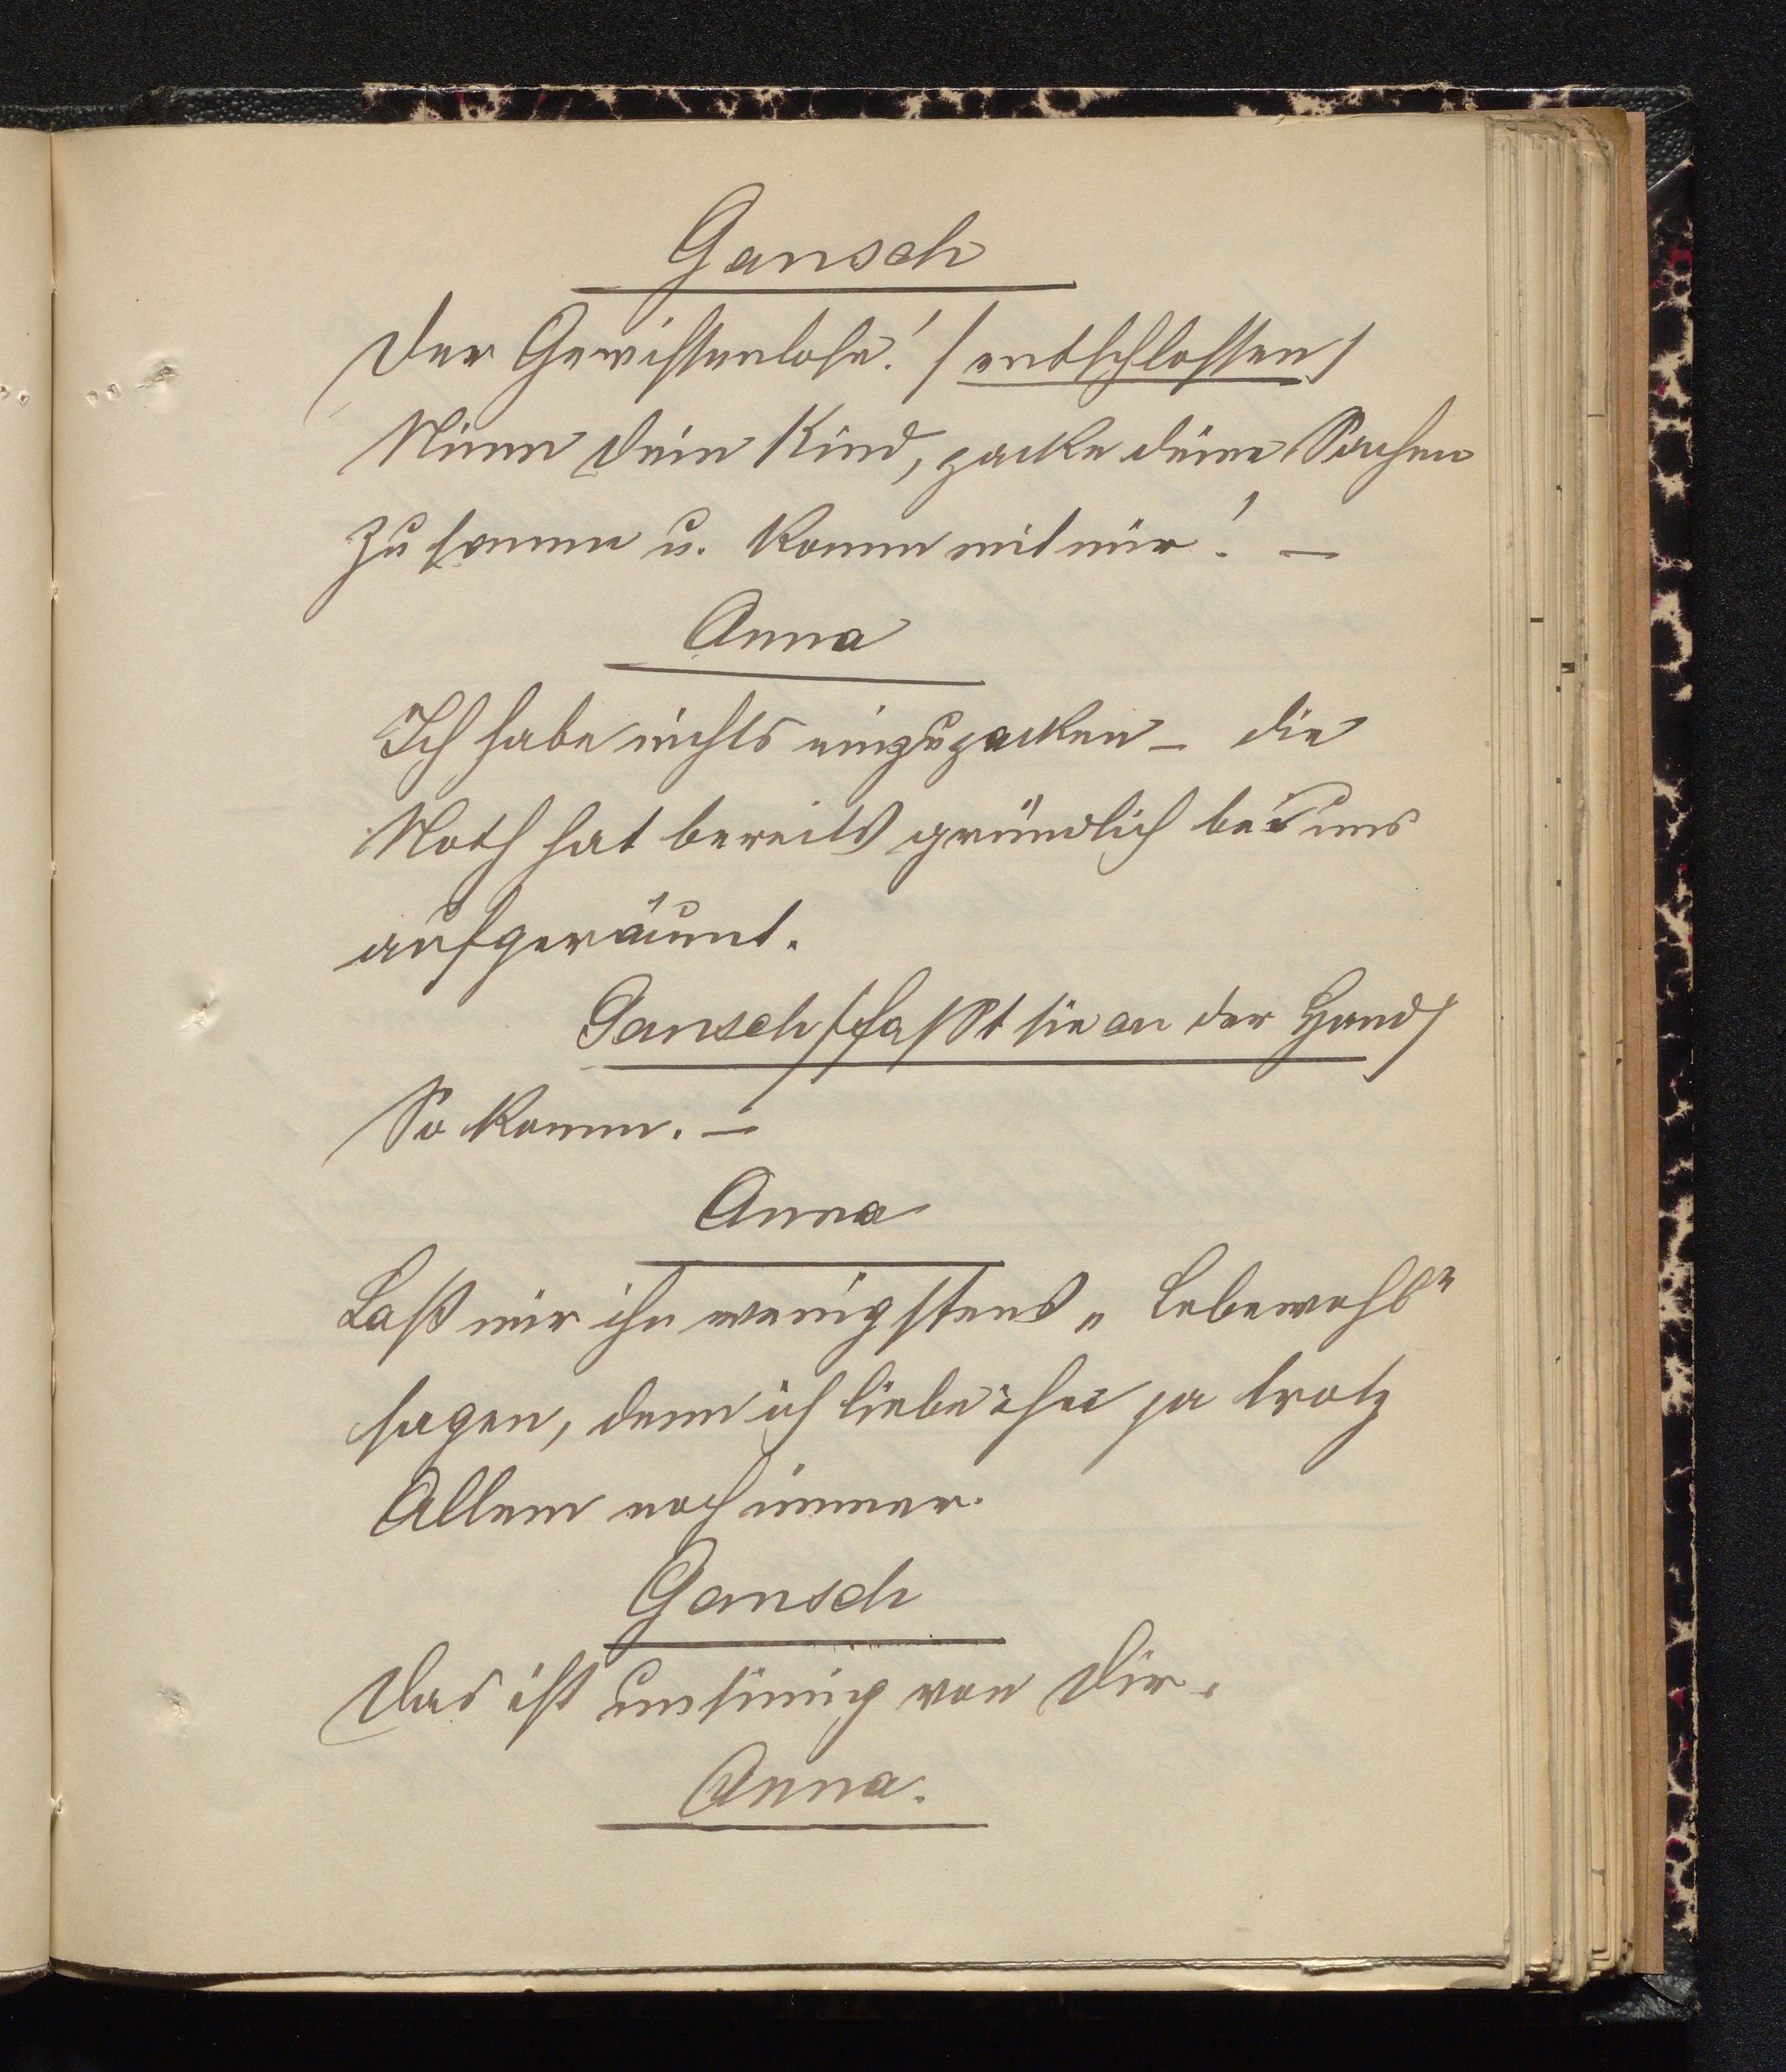 Gansch
Der Gewissenlose! / entschlossen /
Nimm dein Kind, packe deine Sachen
zusamen u. komm mit mir! —
Anna
Ich habe nichts einzupacken – die
Noth hat bereits gründlich bei uns
aufgeräumt.
Gansch / faßt sie an der Hand /
So komm. —
Anna
Laß mir ihn wenigstens „Lebewohl"
sagen, denn ich liebe ihn ja trotz
Allem noch immer.
Gansch
Das ist unsinnig von Dir.
Anna.